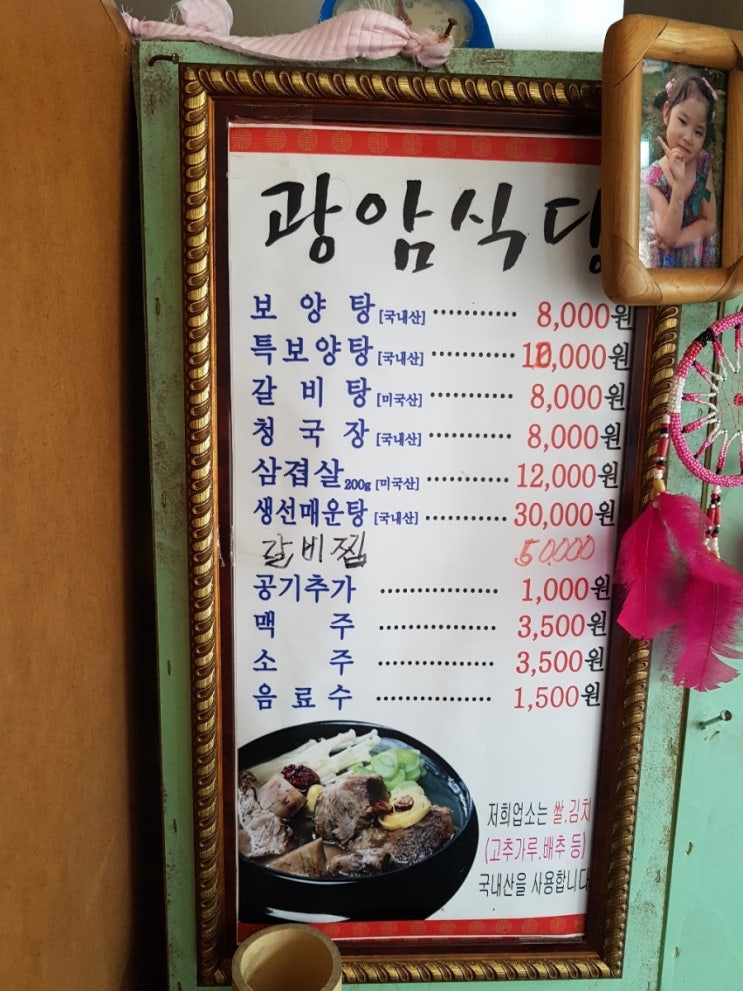 광암식당
보양탕 [국내산] ············ 8,000원
특보양탕 [국내산] ············ ,000원
갈비탕 [미국산] ············ 8,000원
청국장 [국내산] ············ 8,000원
삼겹살 200g [미국산] ············ 12,000원
생선매운탕 [국내산] ············ 30,000원
갈비찜 50.000
공기추가 ················ 1,000원
맥주 ················ 3,500원
소주 ················ 3,500원
음료수 ················ 1,500원
저희업소는 쌀.김치
(고추가루.배추 등)
국내산을 사용합니다